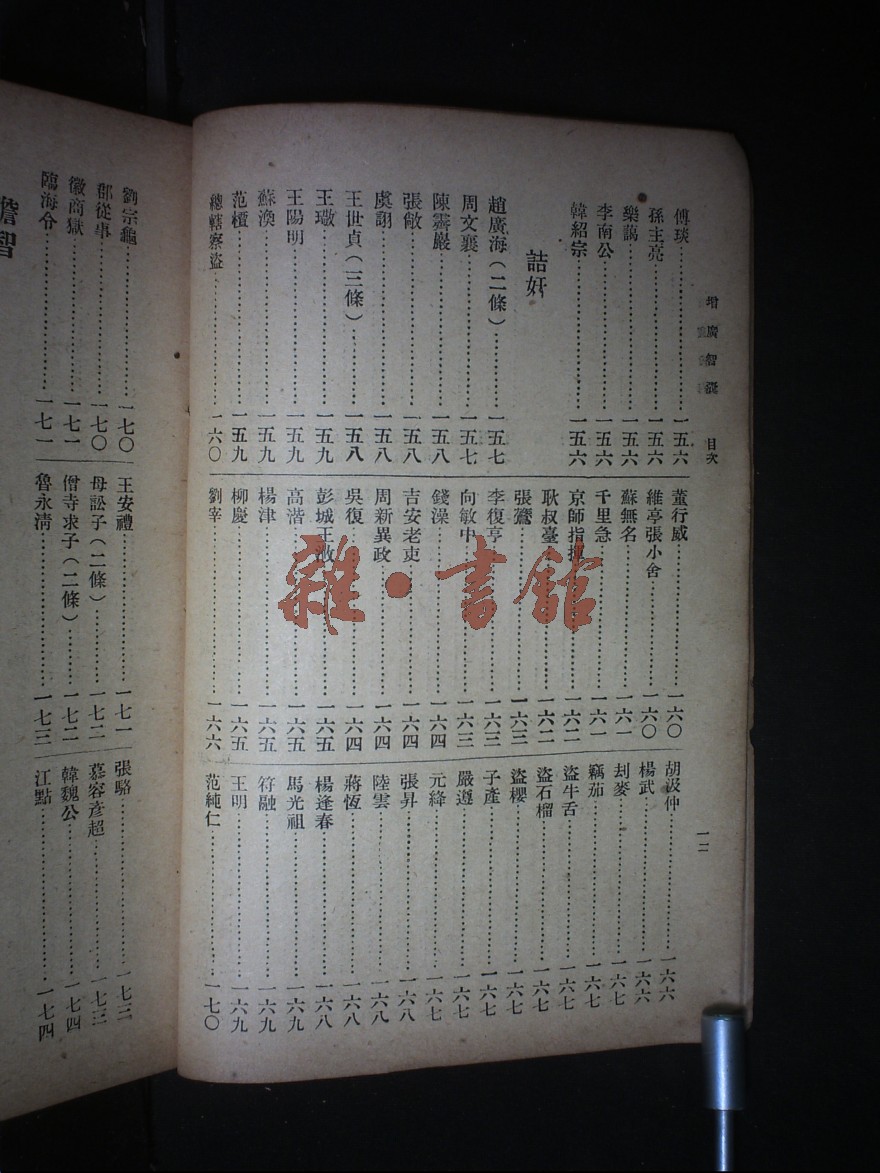 增廣智囊 目次 一二
傅琰 一五六
孫主亮 一五六
樂藹 一五六
李南公 一五六
韓紹宗 一五六
詰奸
趙廣海（二條） 一五七
周文襄 一五七
陳霽巖 一五八
張敞 一五八
虞詡 一五八
王世貞（三條） 一五八
王璥 一五九
王陽明 一五九
蘇渙 一五九
范檟 一五九
總轄察盜 一六〇
董行成 一六〇
維亭張小舍 一六〇
蘇無名 一六一
千里急 一六一
京師指揮 一六二
耿叔臺 一六二
張鷟 一六三
李復亨 一六三
向敏中 一六三
錢藻 一六四
吉安老吏 一六四
周新異政 一六四
吳復 一六四
彭城王浟 一六五
高湝 一六五
楊津 一六五
柳慶 一六五
劉宰 一六六
胡汲仲 一六六
楊武 一六六
刲麥 一六七
竊茄 一六七
盜牛舌 一六七
盜石榴 一六七
盜櫻 一六七
子產 一六七
嚴遵 一六七
元絳 一六七
張昇 一六八
陸雲 一六八
蔣恆 一六八
楊逢春 一六八
馬光祖 一六九
符融 一六九
王明 一六九
范純仁 一七〇
劉宗龜 一七〇
郡從事 一七〇
徽商獄 一七一
臨海令 一七一
王安禮 一七一
母訟子（二條） 一七二
僧寺求子（二條） 一七二
魯永清 一七三
張駱 一七三
慕容彥超 一七三
韓魏公 一七四
江點 一七四
膽智
雜·書館